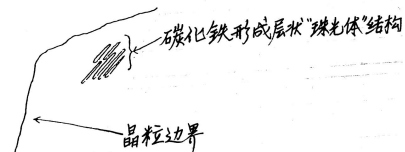 碳化铁形成层状"珠光体"结构
晶粒边界